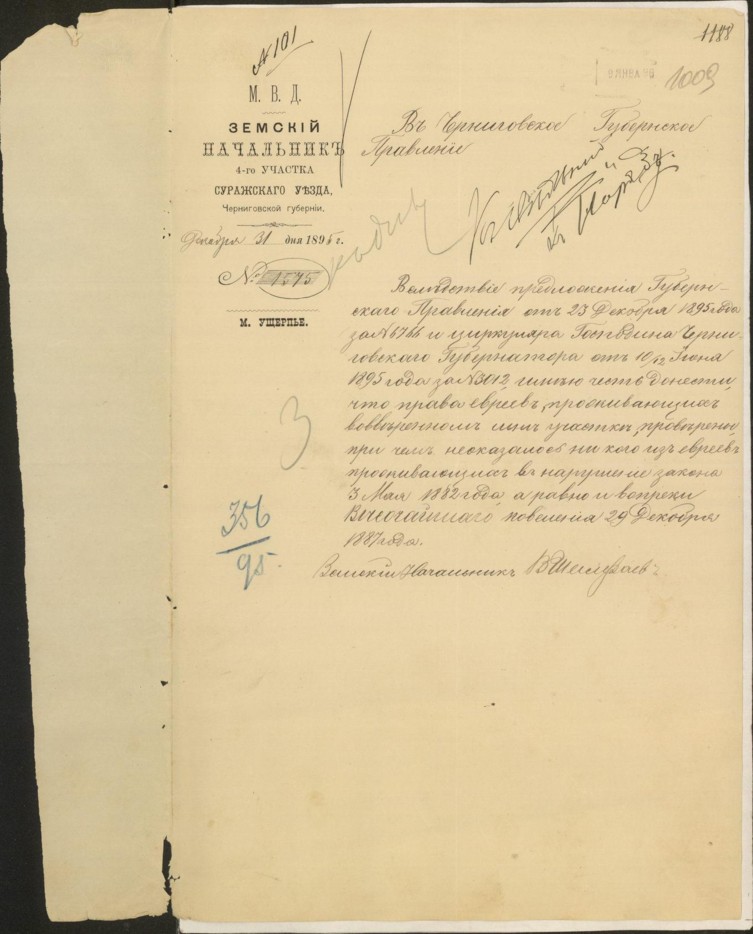 № 101
1188
9 ЯНВА 96
1009
М. В. Д.
ЗЕМСКІЙ
НАЧАЛЬНИКЪ
4-го УЧАСТКА
СУРАЖСКАГО УѢЗДА,
Черниговской губерніи.
Декабря 31 дня 1895 г.
№ 1575
М. УЩЕРПЬЕ.
Въ Черниговское Губернское
Правленіе
Вслѣдствіе предложенія Губерн-
скаго Правленія отъ 23 Декабря 1895 года
за № 6766 и циркуляра Господина Черни-
говскаго Губернатора отъ 10/12 Іюня
1895 года за № 3012, имѣю честь донести,
что права евреевъ, проживающихъ
во ввѣренномъ мнѣ участкѣ, провѣрены,
при чемъ не оказалось ни кого изъ евреевъ
проживающихъ въ нарушеніе закона
3 Мая 1882 года а равно и вопреки
Высочайшаго повеленія 29 Декабря
1887 года.
Земскій Начальникъ
3
356
95.